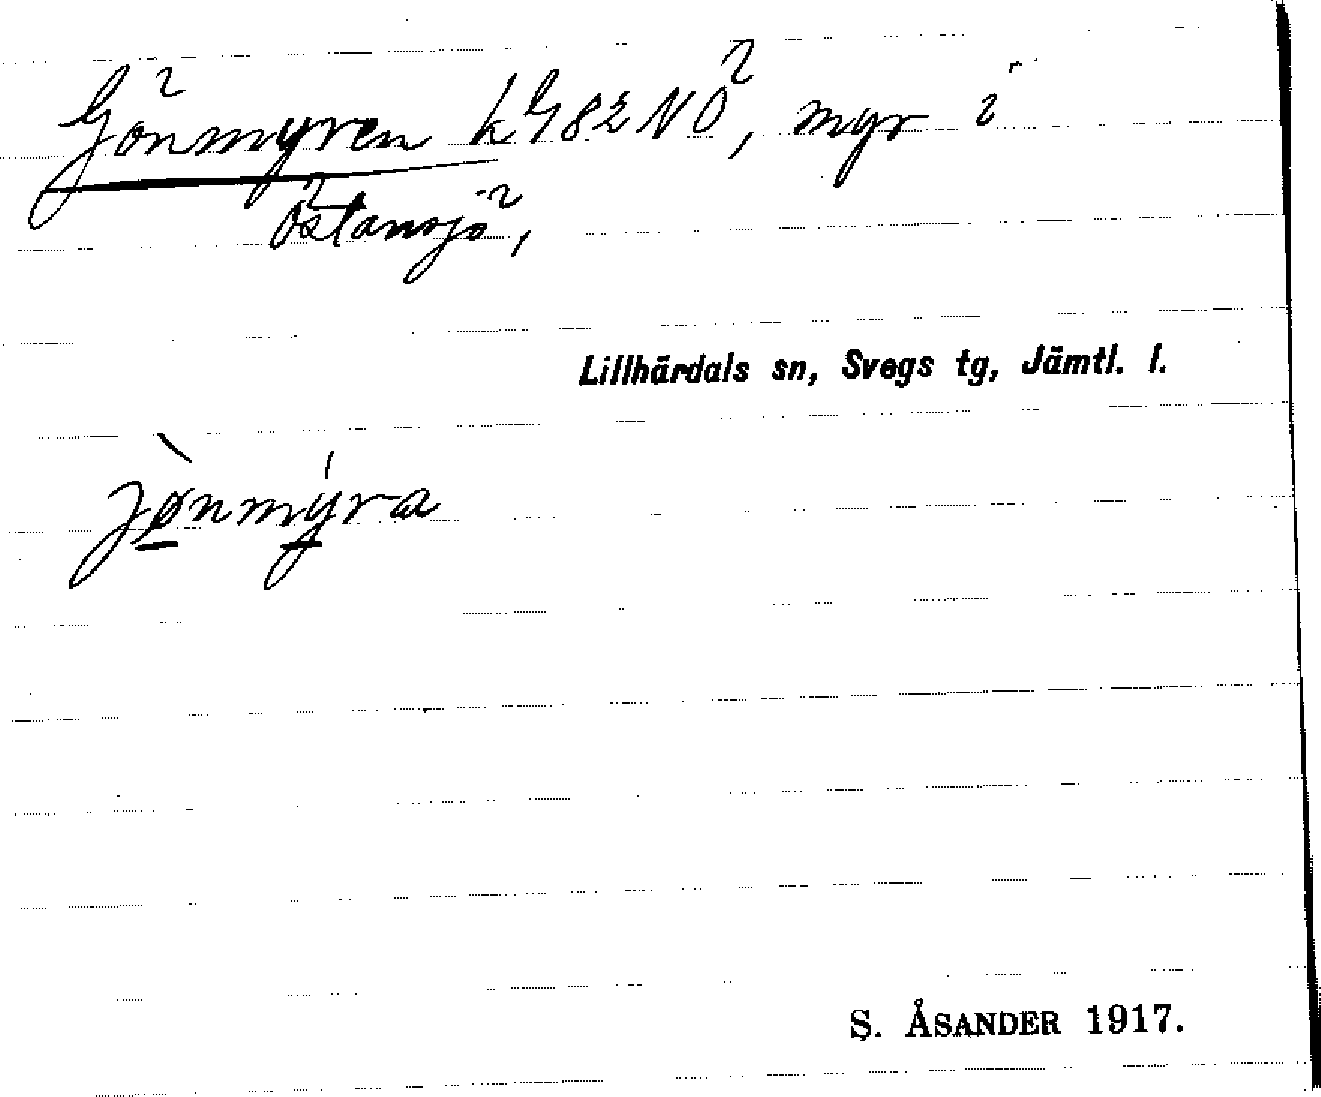 Gönmyren kG82NÖ, myr i
Östansjö,
Lillhärdals sn, Svegs tg, Jämtl. l.
jø̀nmýra
S. ÅSANDER 1917.